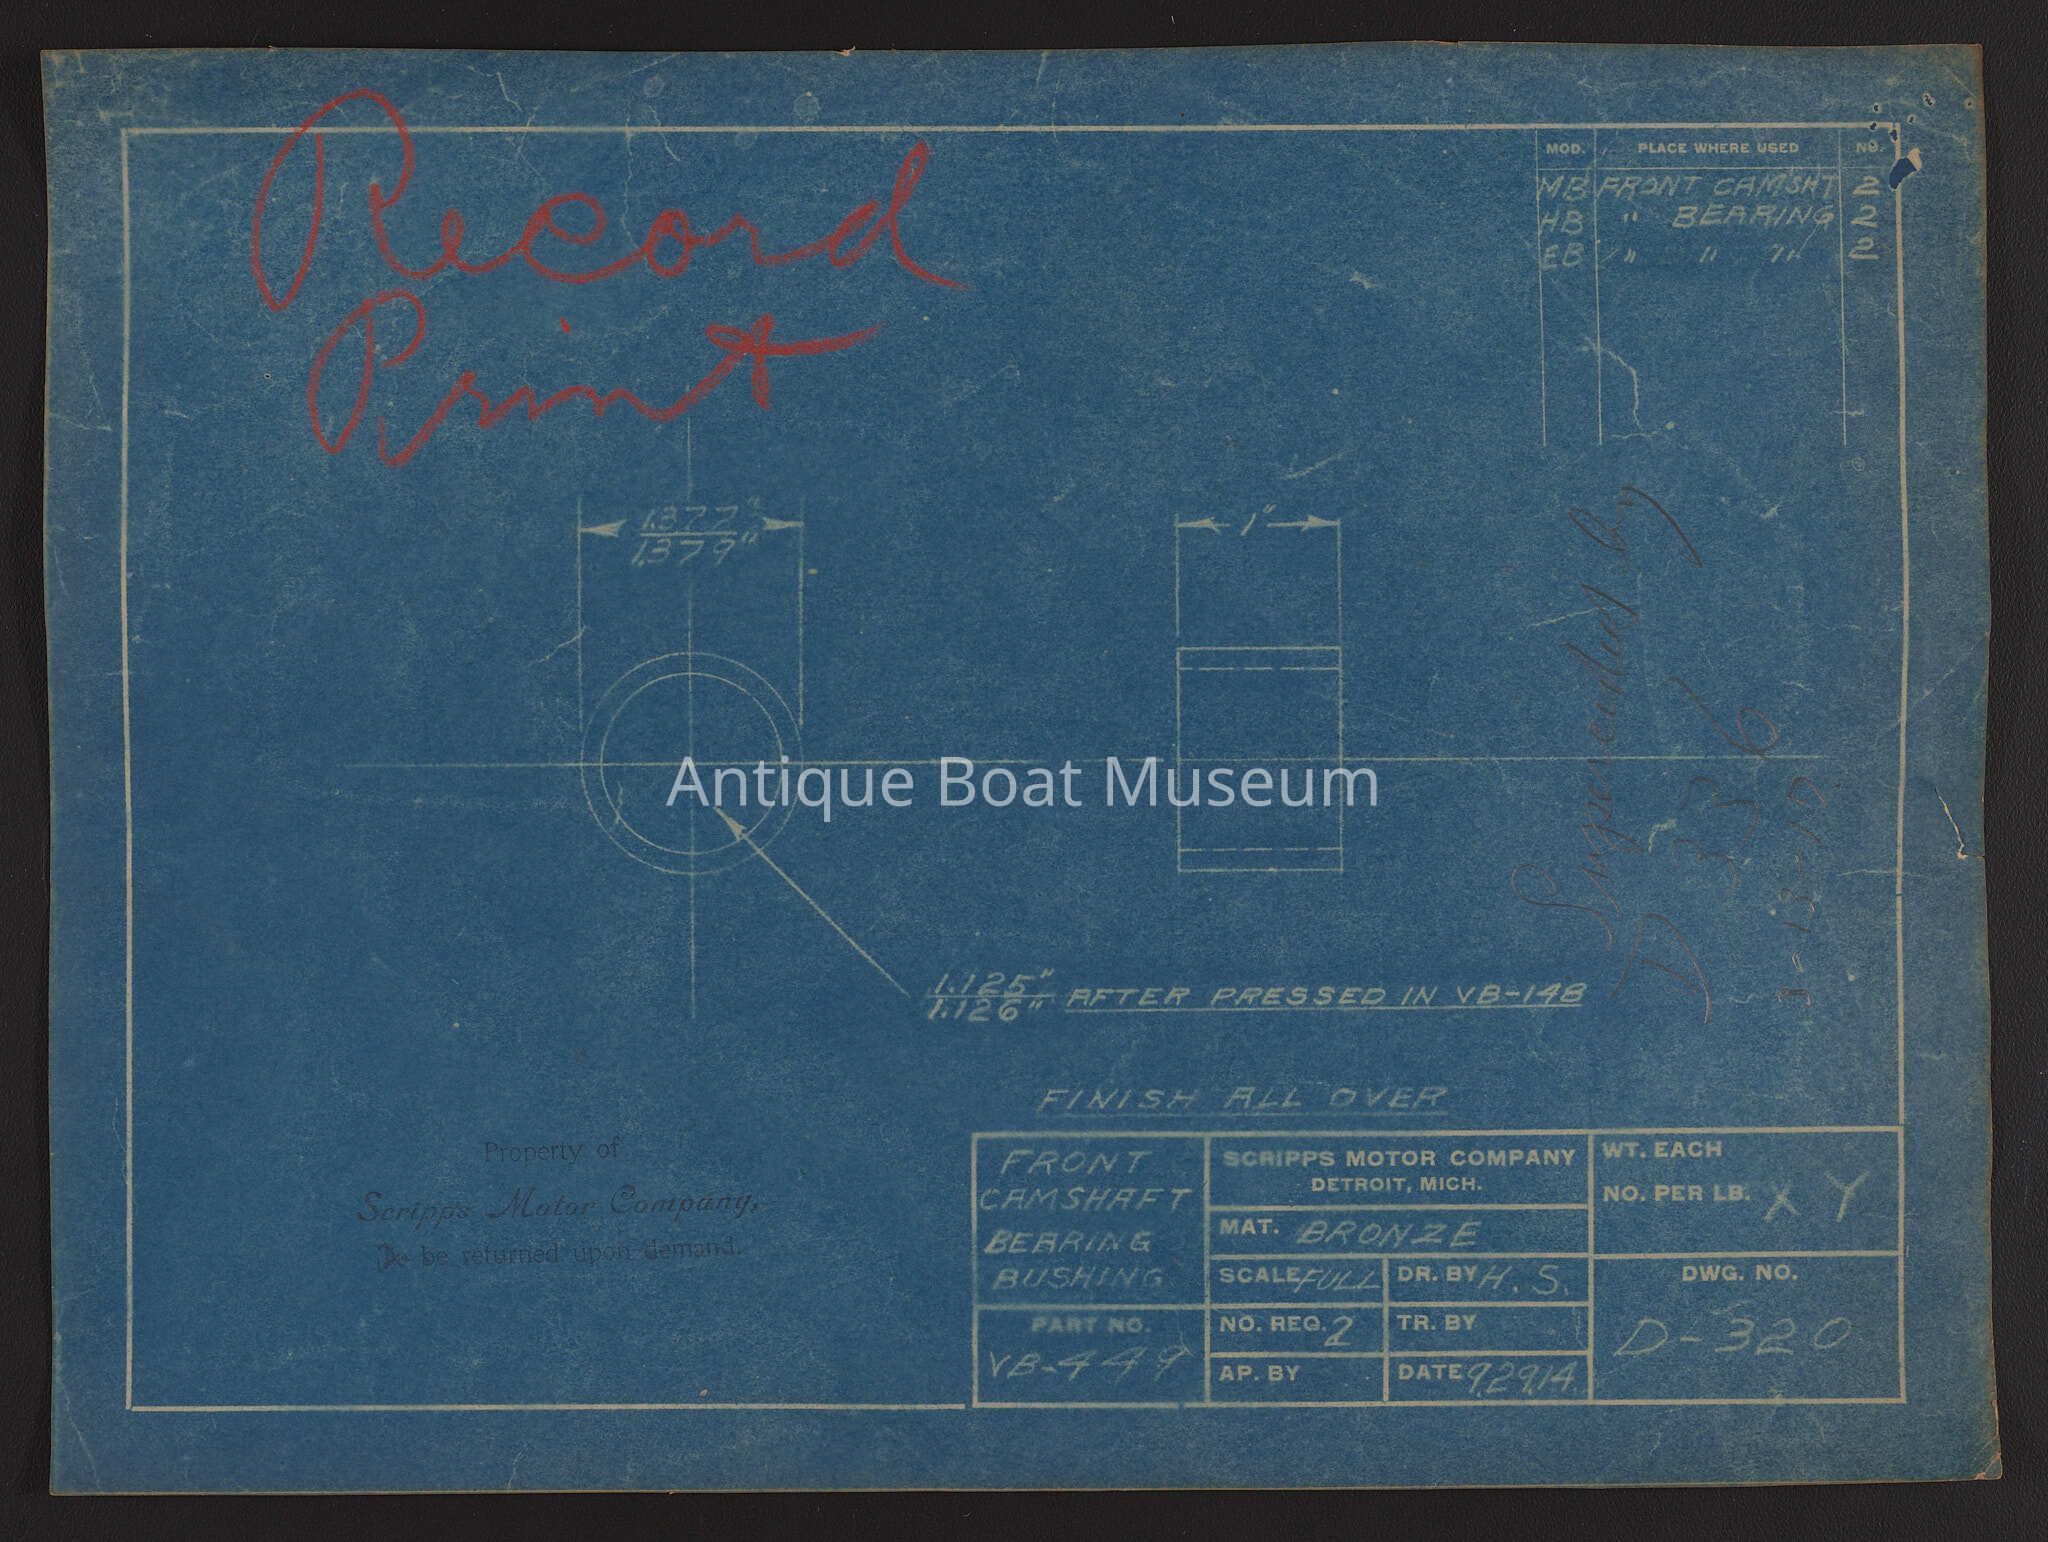 Record
Print
MOD. PLACE WHERE USED NO.
MB FRONT CAMSHT 2
HB " BEARING 2
EB " " " 2
1.377"
1.379"
1"
Superseded by
D 336
3-13-17
Antique Boat Museum
1.125"
1.126" AFTER PRESSED IN VB-148
FINISH ALL OVER
Property of
Scripps Motor Company,
To be returned upon demand.
FRONT
CAMSHAFT
BEARING
BUSHING
PART NO.
VB-449
SCRIPPS MOTOR COMPANY
DETROIT, MICH.
MAT. BRONZE
SCALE FULL DR. BY H. S.
NO. REQ. 2 TR. BY
AP. BY DATE 9.29.14.
WT. EACH
NO. PER LB. X Y
DWG. NO.
D-320